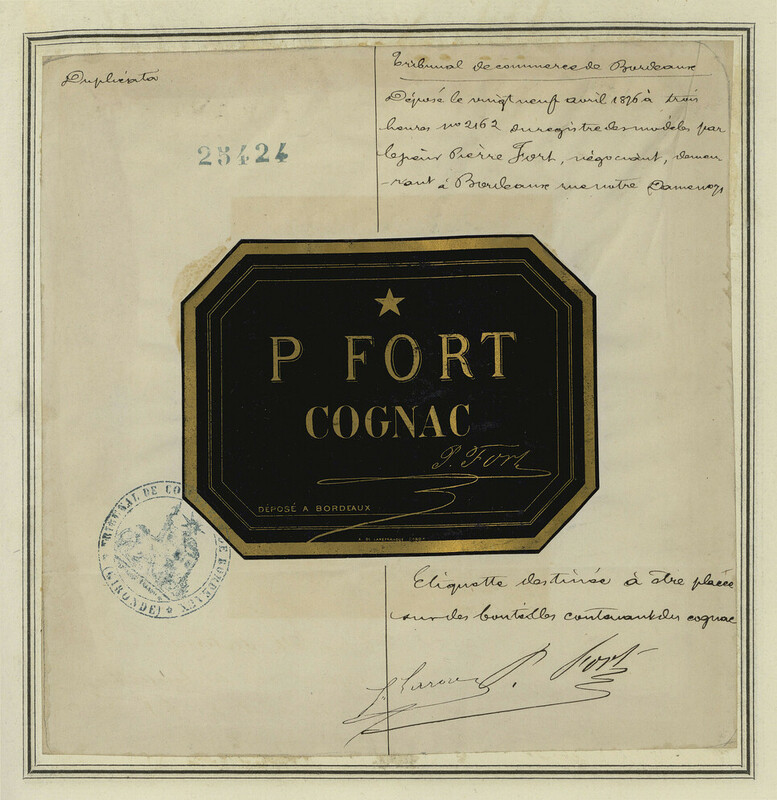 Duplicata
Tribunal de commerce de Bordeaux
Déposé le vingt neuf avril 1876 à trois
heures no 2162 du registre des modèles par
le sieur Pierre Fort, négociant, demeu
-rant à Bordeaux rue notre Dame
25424
P FORT
COGNAC
P. Fort
DÉPOSÉ A BORDEAUX
TRIBUNAL DE CO DE BORDEAUX
(GIRONDE)
Etiquette destinée à être placée
sur des bouteilles contenant du cognac
P. Fort